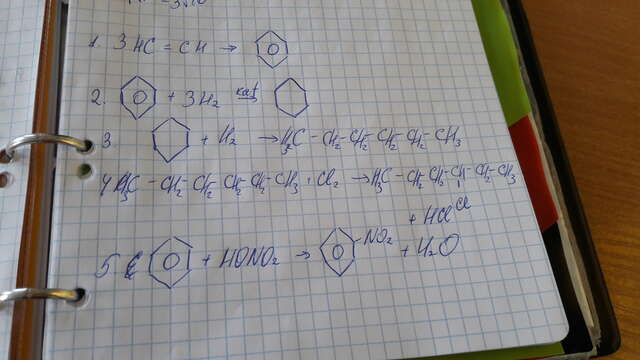 1. 3HC = CH →
2. + 3H₂ kat →
3. + H₂ → H₃C - CH₂ - CH₂ - CH₂ - CH₂ - CH₃
4. H₃C - CH₂ - CH₂ - CH₂ - CH₂ - CH₃ + Cl₂ → H₃C - CH₂ - CH₂ - CH - CH₂ - CH₃
Cl
+ HCl
5 + HONO₂ → - NO₂ + H₂O